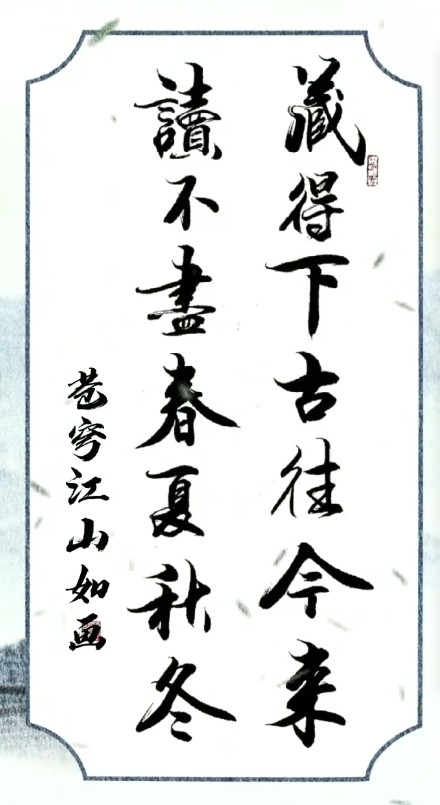 藏得下古往今来
讀不盡春夏秋冬
苍穹江山如画